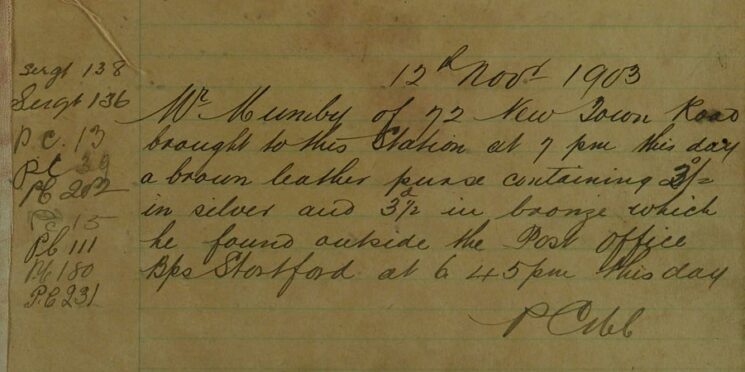 Sergt 138
Sergt 136
P C. 13
PC 39
PC 202
PC 15
PC 111
PC 180
P.C 231
12th Novr 1903
Mr Mumby of 72 New Town Road
brought to this Station at 7 pm this day
a brown leather purse containing
in silver and 3½ in bronze which
he found outside the Post office
Bps Stortford at 6 45 pm this day